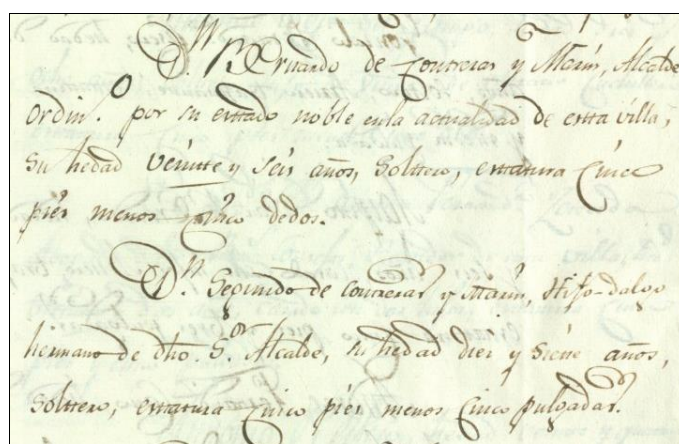 Dn. Bernardo de Contreras y Marin, Alcalde
ordino. por su estado noble en la actualidad de esta villa,
su hedad Veinte y seis años, Soltero, estatura Cinco
pies menos cinco dedos.
Dn. Segundo de Contreras y Marin, Hijo-dalgo
hermano de dho. Sor. Alcalde, su hedad diez y siete años,
Soltero, estatura Cinco pies menos Cinco pulgadas.